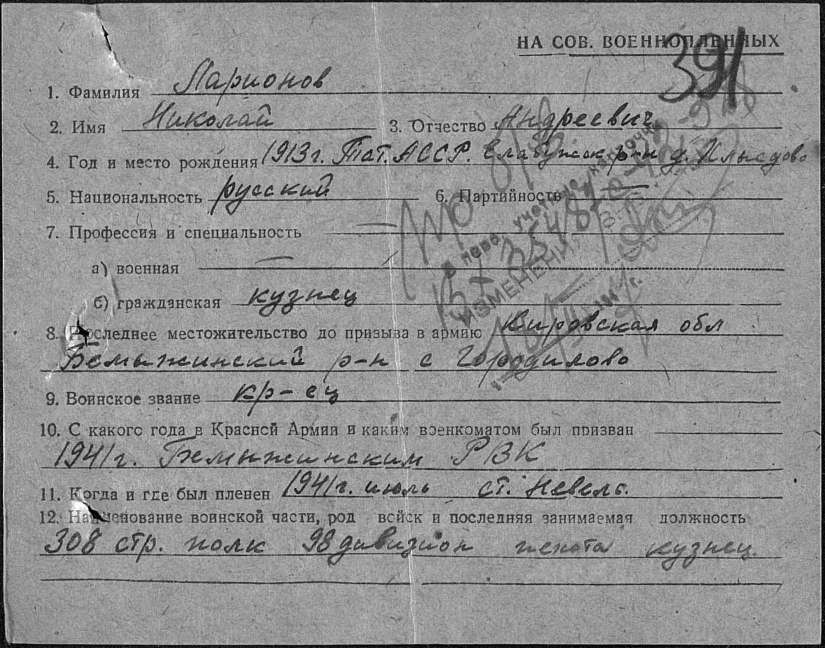 НА СОВ. ВОЕННОПЛЕННЫХ
391
1. Фамилия Ларионов
2. Имя Николай 3. Отчество Андреевич
4. Год и место рождения 1913 г. Тат. АССР. Елабужск р-н д.
5. Национальность русский 6. Партийность —
7. Профессия и специальность —
а) военная —
б) гражданская кузнец
8. Последнее местожительство до призыва в армию Кировская обл
Бемыжинский р-н с Городилово
9. Воинское звание кр-ец
10. С какого года в Красной Армии и каким военкоматом был призван
1941 г. Бемыжинским РВК
11. Когда и где был пленен 1941 г. июль ст. Невель.
12. Наименование воинской части, род войск и последняя занимаемая должность
308 стр. полк 98 дивизион пехота кузнец.
ИЗМЕНЕНИ